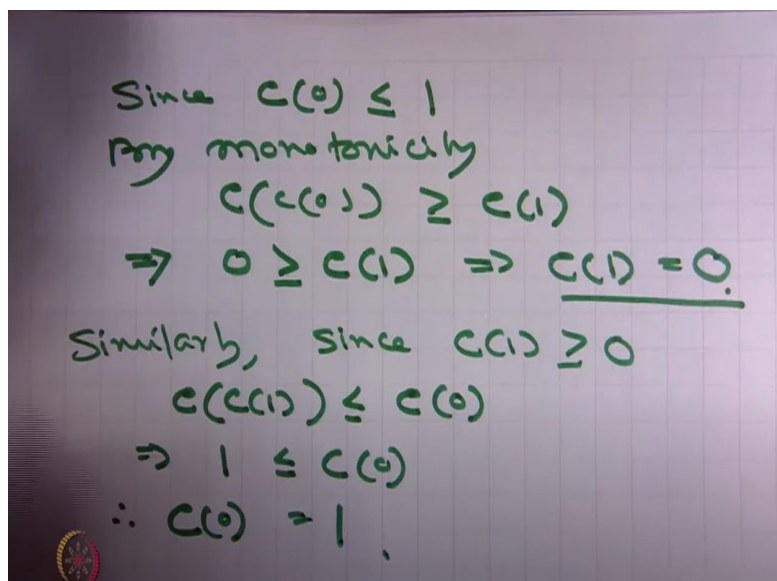 Since C(0) ≤ 1
By monotonicity
C(C(0)) ≥ C(1)
⇒ 0 ≥ C(1) ⇒ C(1) = 0.
Similarly, Since C(1) ≥ 0
C(C(1)) ≤ C(0)
⇒ 1 ≤ C(0)
∴ C(0) = 1.